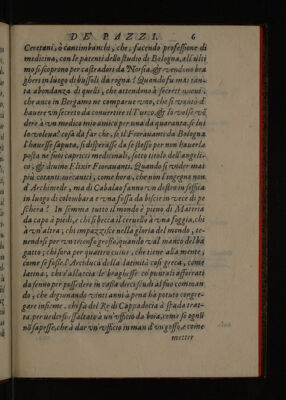 DE PAZZI. 6
Ceretani, ò cantimbanchi, che, facendo professione di
medicina, con le patenti dello studio di Bologna, all'ulti
mo si scoprono per castradori da Norsia, & vendono bra
ghers in luogo di bussoli da rogna? Quando fu mai tan-
ta abondanza di quelli, che attendono à secreti nuovi,
che anco in Bergamo ne comparue uno, che si uantò d'
hauere un secreto da conuertire il Turco, & lo volse vẽ
dere à un medico mio amico per una da quaranta, se lui
lo voleua? cosa da far che, se il Fiorauanti da Bologna
l'hauesse saputa, si disperasse da se stesso per non hauerla
posta ne suoi capricci medicinali, sotto titolo dell'angeli-
co, & diuino Elixir Fiorauanti. Quando si vider mai
più cotanti mecanici, come hora, che non l'ingegno non
d'Archimede, ma di Cabalao fanno un destro in soffitta
in luogo di colombara e una fossa da biscie in vece di pe
schera? In somma tutto il mondo è pieno di Materia
da capo à piedi, e chi si becca il ceruello à una foggia, chi
à vn'altra; chi impazzisce nella gloria del mondo, te-
nendosi per un tronfo grosso, quando vn al manco del ba
gatto; chi fora per quattro cuius, che tiene alla mente,
come se fosse l'Archiduca della latinità cosi greca, come
latina; che s'allaccia le braghesse co puntali afforrati
da fenio per posseder in cassa dieci scudi al suo comman-
do, che digiunando vinti anni à pena hà potuto congre-
gare insieme, chi fà del Re di Cappadocia à spada trat-
ta, per uedersi essaltato à un'ufficio da boia, come se ognũ
nõ sapesse, che à dar vn'vfficio in man d'un goffo, e come
metter